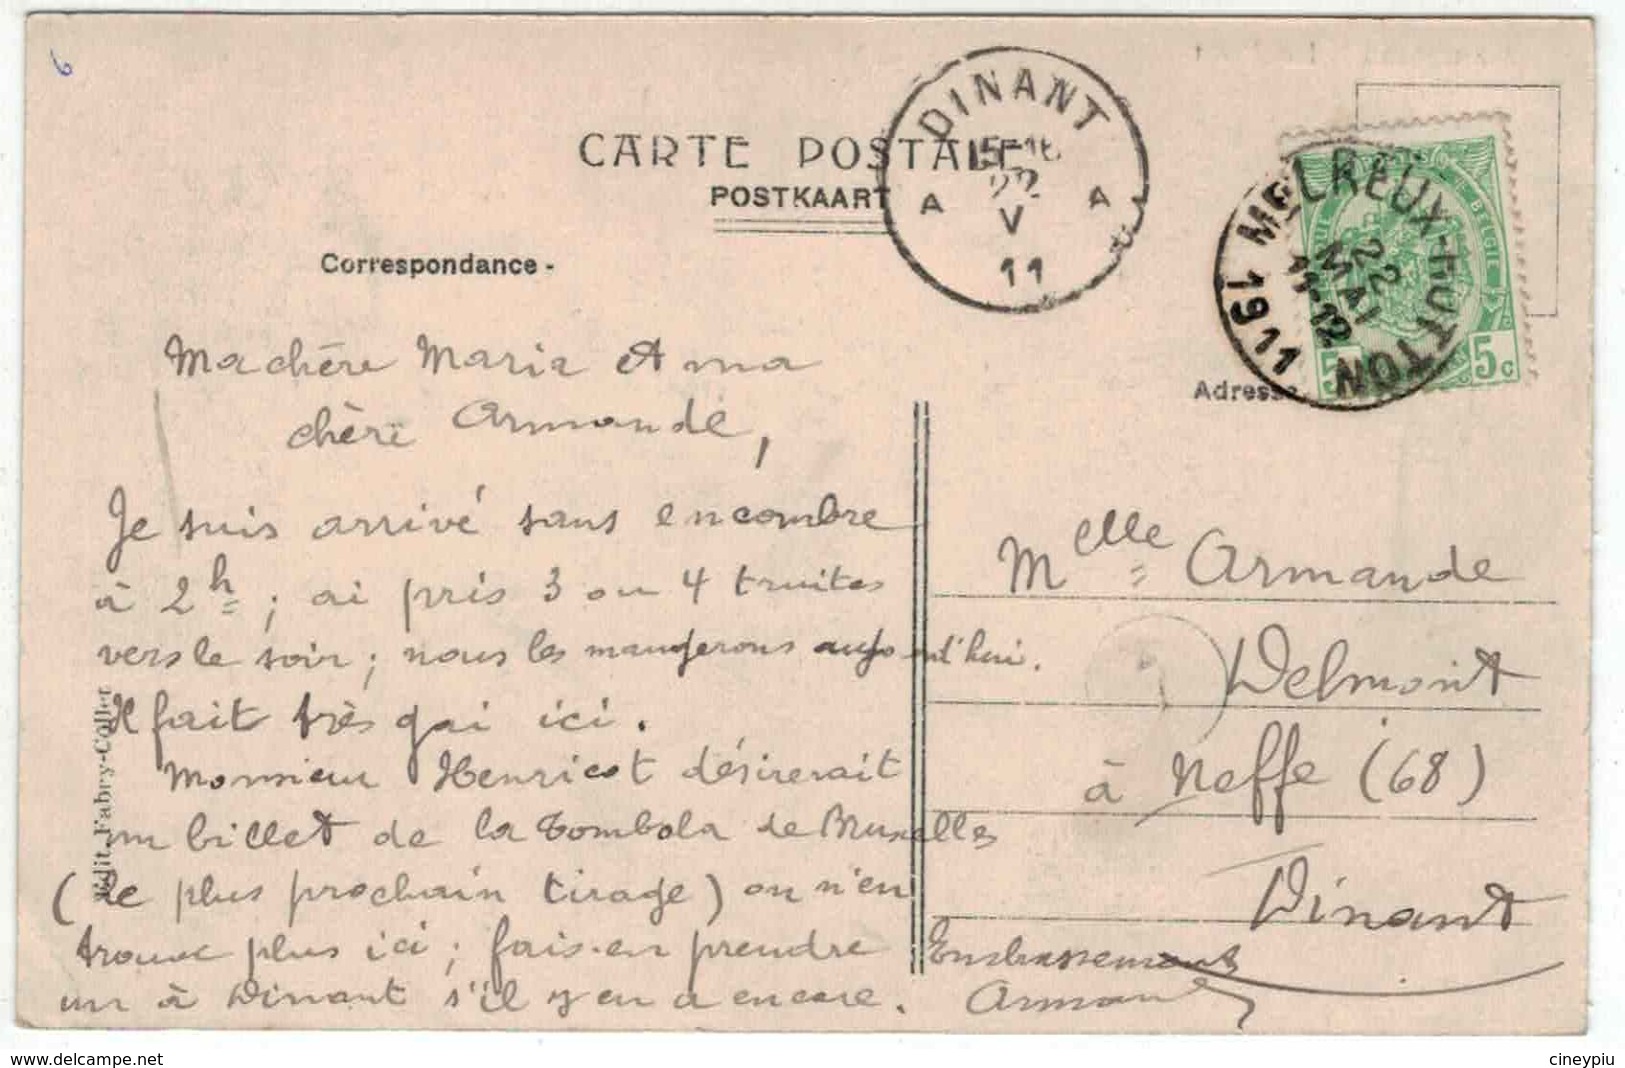 6
CARTE POSTALE
POSTKAART
Correspondance -
DINANT
15-16
22
V
11
A A
MELREUX-HOTTON
22
MAI
11-12
1911
BELGIE
5
5c
Adresse
Ma chère Maria et ma
chère Armande,
Je suis arrivé sans encombre
à 2h ; ai pris 3 ou 4 truites
vers le soir ; nous les mangerons aujourd'hui.
Il fait très gai ici.
Monsieur Henricot désirerait
un billet de la tombola de Bruxelles
(le plus prochain tirage) on n'en
trouve plus ici ; fais-en prendre
un à Dinant s'il y en a encore.
Embrassements
Armand
Melle Armande
Delmont
à Neffe (68)
Dinant
Edit. Fabry-Collet
www.delcampe.net
cineypiu